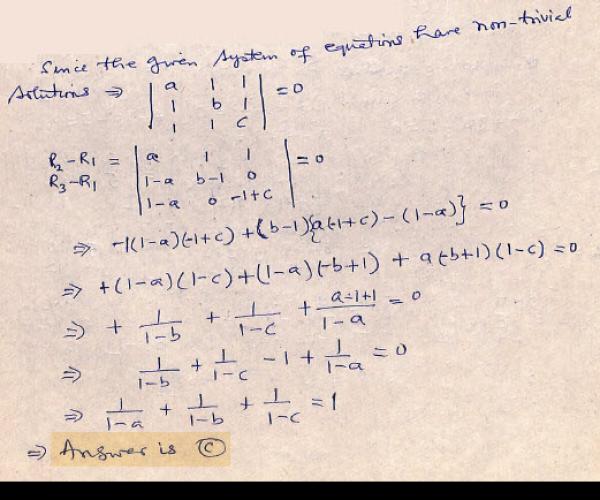 Since the given system of equations have non-trivial
solutions ⇒ | a 1 1 | = 0
| 1 b 1 |
| 1 1 c |
R₂-R₁ = | a 1 1 | = 0
R₃-R₁ | 1-a b-1 0 |
| 1-a 0 -1+c |
⇒ -1(1-a)(-1+c) + (b-1){a(-1+c) - (1-a)} = 0
⇒ +(1-a)(1-c) + (1-a)(-b+1) + a(-b+1)(1-c) = 0
⇒ + 1/(1-b) + 1/(1-c) + (a-1+1)/(1-a) = 0
⇒ 1/(1-b) + 1/(1-c) - 1 + 1/(1-a) = 0
⇒ 1/(1-a) + 1/(1-b) + 1/(1-c) = 1
⇒ Answer is Ⓒ